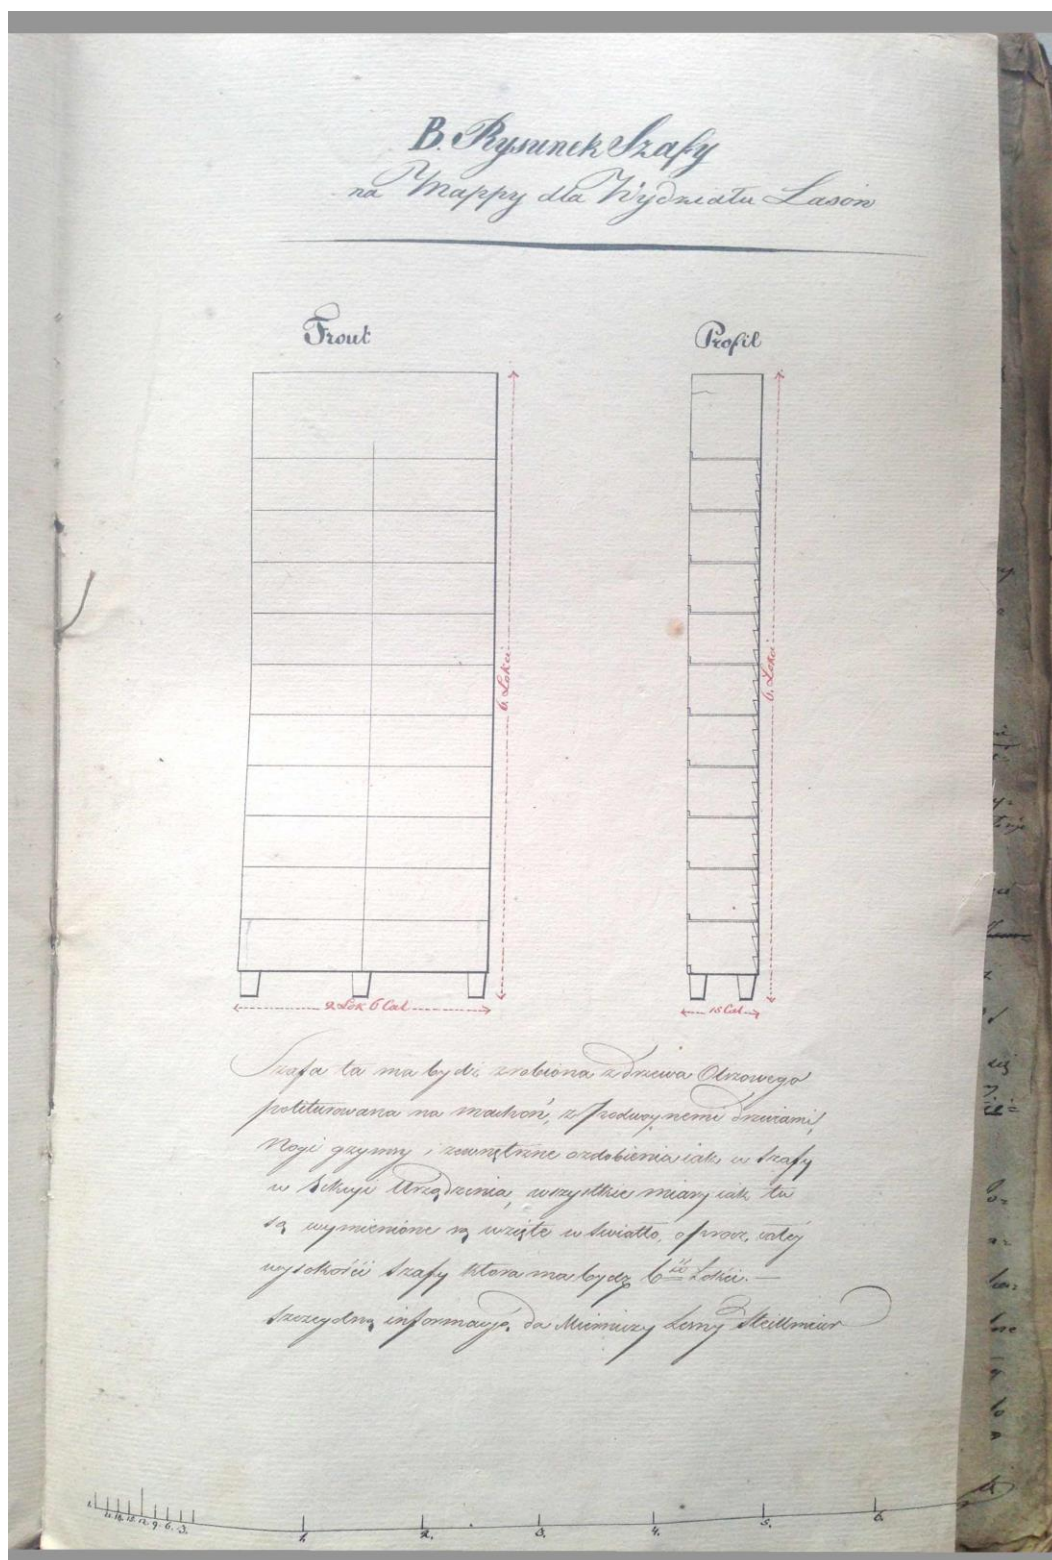 B. Rysunek Szafy
na Mappy dla Wydziału Lasów
Front
Profil
6. Łokci
6. Łokci
2 Łok 6 Cal
15 Cal
Szafa ta ma bydź zrobiona z drzewa Olszowego
politurowana na machoń, z podwoynemi drzwiami,
Nogi gzymsy i zewnętrzne ozdobienia iak w Szafy
w Sekcyi Urządzenia, wszystkie miary iak tu
są wymienione są wzięte w światło, oprocz całéy
wysokości Szafy ktora ma bydz 6ść Łokci. —
Szczegulną informacyą da Mierniczy Leśny
1. 21. 18. 15. 12. 9. 6. 3.
1. 2. 3. 4. 5. 6.